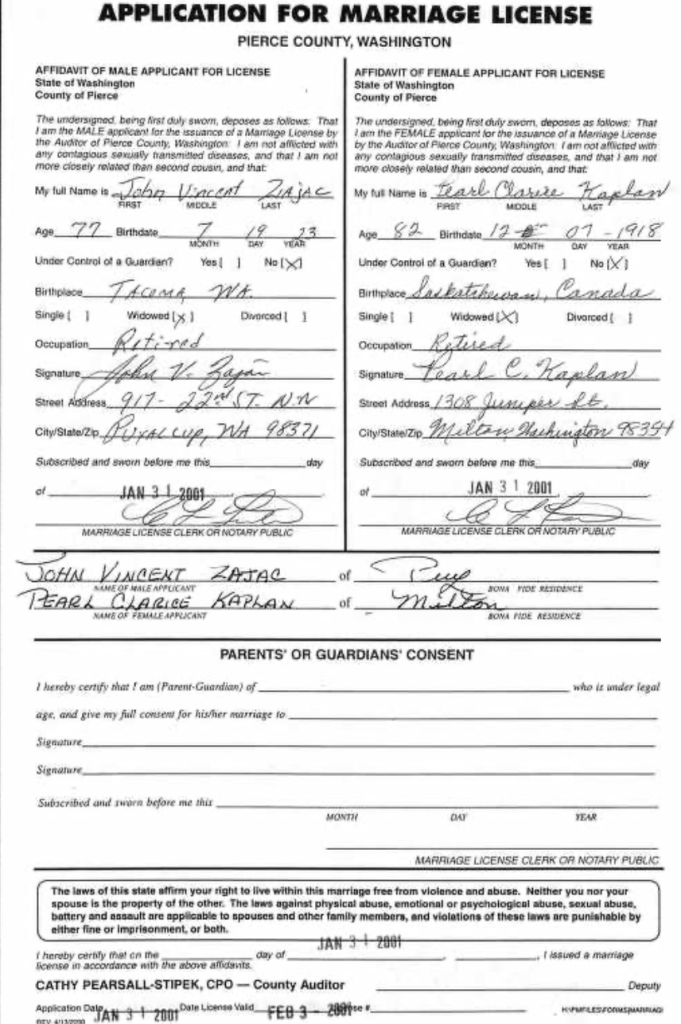 APPLICATION FOR MARRIAGE LICENSE
PIERCE COUNTY, WASHINGTON
AFFIDAVIT OF MALE APPLICANT FOR LICENSE
State of Washington
County of Pierce
The undersigned, being first duly sworn, deposes as follows: That
I am the MALE applicant for the issuance of a Marriage License by
the Auditor of Pierce County, Washington: I am not afflicted with
any contagious sexually transmitted diseases, and that I am not
more closely related than second cousin, and that:
My full Name is John Vincent Zajac
FIRST MIDDLE LAST
Age 77 Birthdate 7 19 23
MONTH DAY YEAR
Under Control of a Guardian? Yes [ ] No [X]
Birthplace TACOMA, WA.
Single [ ] Widowed [X] Divorced [ ]
Occupation Retired
Signature John V. Zajac
Street Address 917 - 22nd ST. NW
City/State/Zip PUYALLUP, WA 98371
Subscribed and sworn before me this day
of JAN 31 2001
MARRIAGE LICENSE CLERK OR NOTARY PUBLIC
AFFIDAVIT OF FEMALE APPLICANT FOR LICENSE
State of Washington
County of Pierce
The undersigned, being first duly sworn, deposes as follows: That
I am the FEMALE applicant for the issuance of a Marriage License
by the Auditor of Pierce County, Washington: I am not afflicted with
any contagious sexually transmitted diseases, and that I am not
more closely related than second cousin, and that:
My full Name is Pearl Clarice Kaplan
FIRST MIDDLE LAST
Age 82 Birthdate 12 - 07 - 1918
MONTH DAY YEAR
Under Control of a Guardian? Yes [ ] No [X]
Birthplace Saskatchewan, Canada
Single [ ] Widowed [X] Divorced [ ]
Occupation Retired
Signature Pearl C. Kaplan
Street Address 1308 Juniper St.
City/State/Zip Milton, Washington 98354
Subscribed and sworn before me this day
of JAN 31 2001
MARRIAGE LICENSE CLERK OR NOTARY PUBLIC
JOHN VINCENT ZAJAC of Puy
NAME OF MALE APPLICANT BONA FIDE RESIDENCE
PEARL CLARICE KAPLAN of Milton
NAME OF FEMALE APPLICANT BONA FIDE RESIDENCE
PARENTS' OR GUARDIANS' CONSENT
I hereby certify that I am (Parent-Guardian) of who is under legal
age, and give my full consent for his/her marriage to
Signature
Signature
Subscribed and sworn before me this
MONTH DAY YEAR
MARRIAGE LICENSE CLERK OR NOTARY PUBLIC
The laws of this state affirm your right to live within this marriage free from violence and abuse. Neither you nor your
spouse is the property of the other. The laws against physical abuse, emotional or psychological abuse, sexual abuse,
battery and assault are applicable to spouses and other family members, and violations of these laws are punishable by
either fine or imprisonment, or both.
JAN 31 2001
I hereby certify that on the day of , , I issued a marriage
license in accordance with the above affidavits.
CATHY PEARSALL-STIPEK, CPO — County Auditor Deputy
Application Date JAN 31 2001 Date License Valid FEB 3 - 2001 #
REV. 4/13/2000